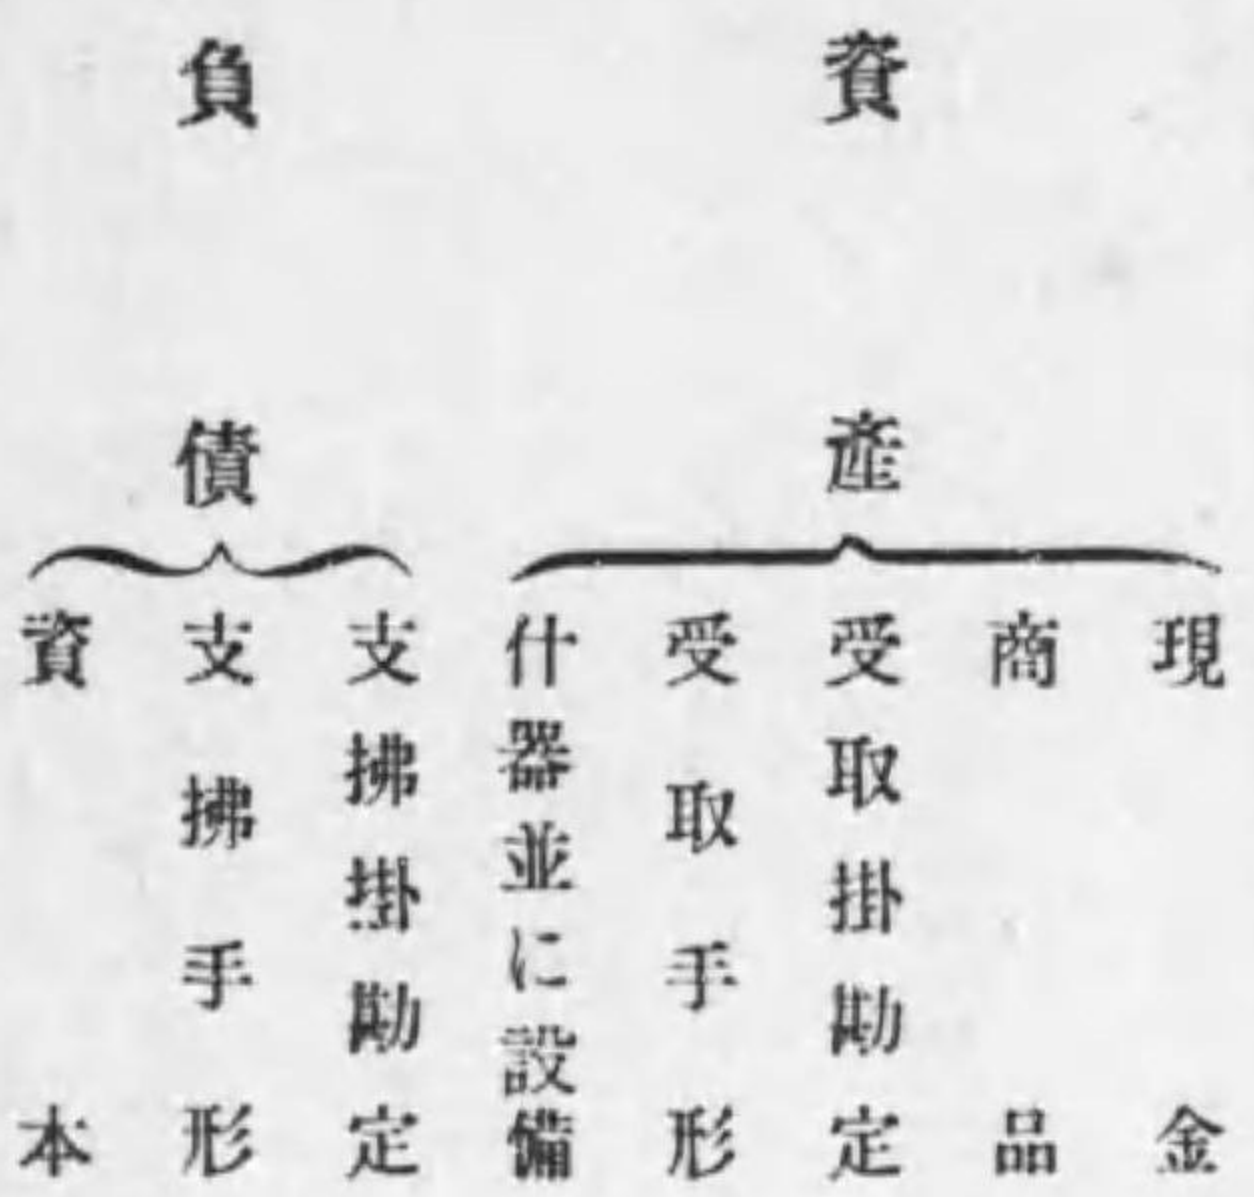 資産
現金
商品
受取掛勘定
受取手形
什器並に設備
負債
支拂掛勘定
支拂手形
資本